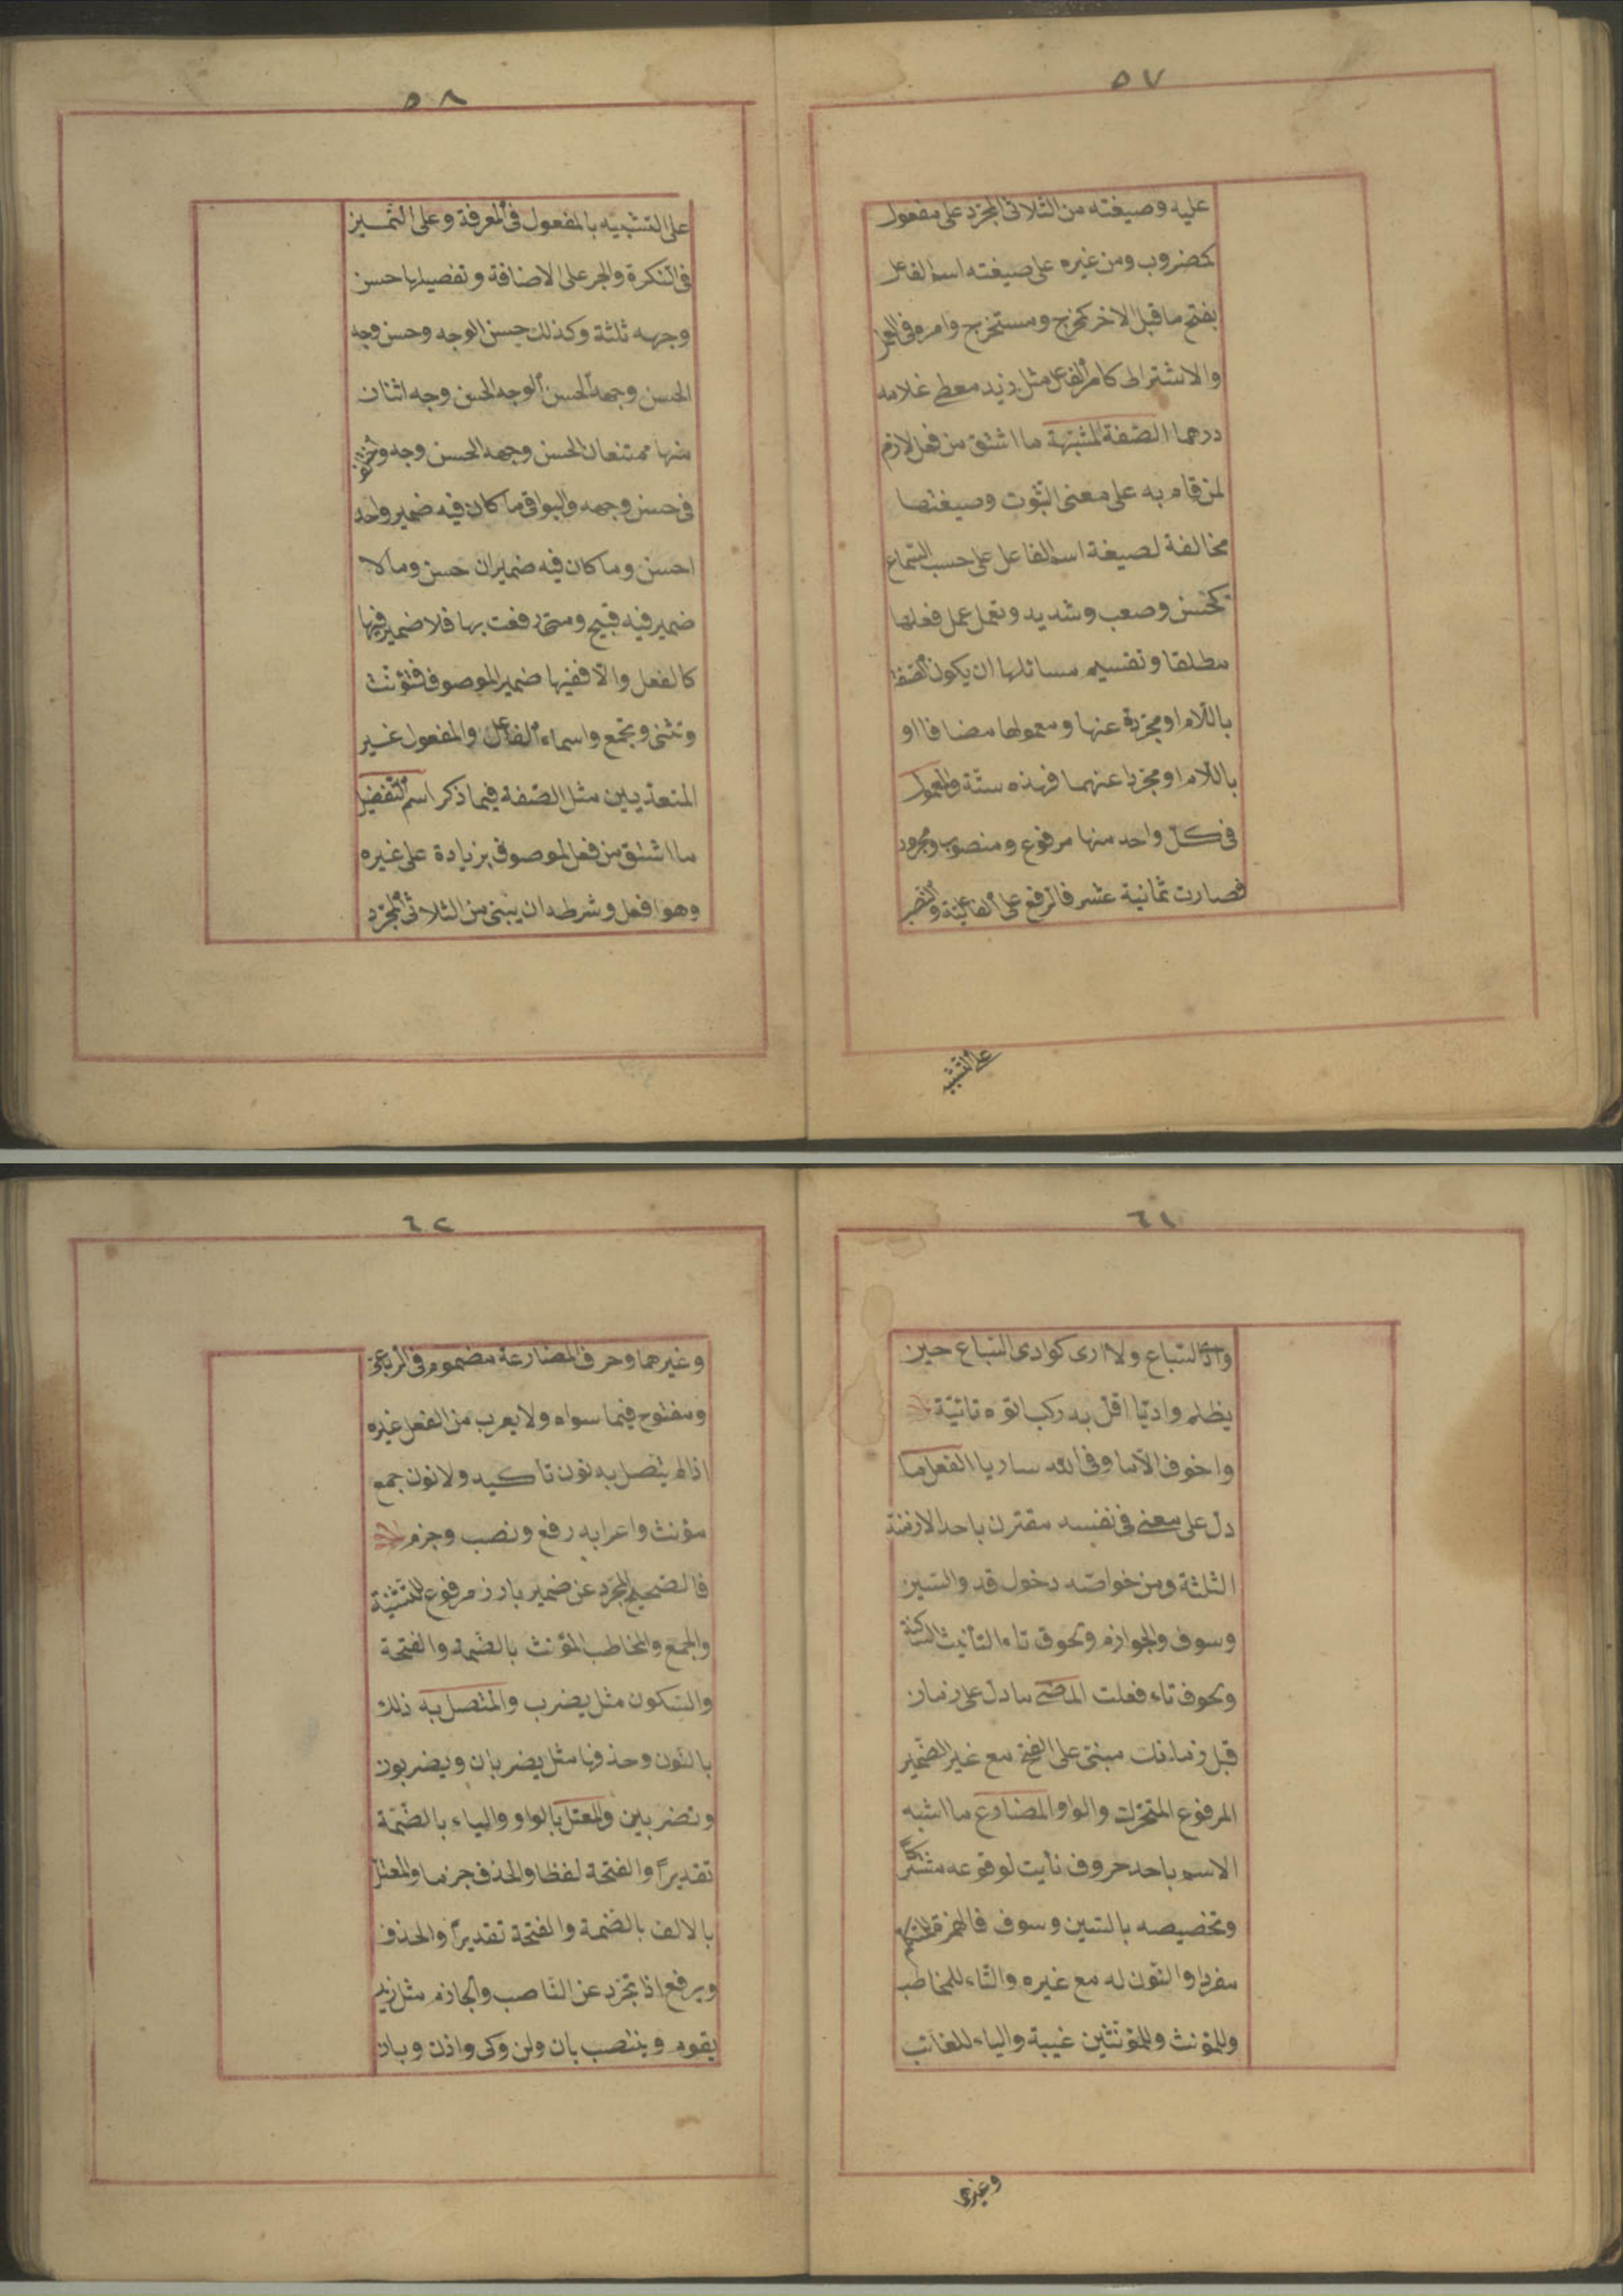 ٥٧
عليه وصيغته من الثلاثى المجرّد على مفعول
كمضروب ومن غيره على صيغته اسم الفاعل
بفتح ما قبل الاخر كمخرج ومستخرج وامره فى العمل
والاشتراط كامر الفاعل مثل زيد معطى غلامه
درهما الصّفة المشبّهة ما اشتق من فعل لازم
لمن قام به على معنى الثبوت وصيغتها
مخالفة لصيغة اسم الفاعل على حسب السّماع
كحسن وصعب وشديد وتعمل عمل فعلها
مطلقا وتقسيم مسائلها ان يكون الصفة
باللّام او مجرّدة عنها ومعمولها مضافا او
باللّام او مجرّدا عنهما فهذه ستّة والمعمول
فى كلّ واحد منها مرفوع ومنصوب ومجرور
فصارت ثمانية عشر فالرفع على الفاعليّة والنصب
على التشبيه
٥٨
على التشبيه بالمفعول فى المعرفة وعلى التمييز
فى النكرة والجر على الاضافة وتفصيلها حسن
وجهه ثلثة وكذلك حسن الوجه وحسن وجه
الحسن وجهه الحسن الوجه الحسن وجه اثنان
منها ممتنعان الحسن وجهه الحسن وجه واختلف
فى حسن وجهه والبواقى ما كان فيه ضمير واحد
احسن وما كان فيه ضميران حسن وما لا
ضمير فيه قبيح ومتى رفعت بها فلا ضمير فيها
كالفعل والّا ففيها ضمير الموصوف فتؤنّث
وتثنى وتجمع واسماء الفاعل والمفعول غير
المتعدّيين مثل الصّفة فيما ذكر اسم التّفضيل
ما اشتق من فعل لموصوف بزيادة على غيره
وهو افعل وشرطه ان يبنى من الثلاثى المجرّد
٦١
وادى السّباع ولا ارى كوادى السّباع حين
يظلم واديًا اقلّ به ركب اتوه تائيّة
واخوف الّا ما وقى اللّه ساريا الفعل ما
دلّ على معنى فى نفسه مقترن باحد الازمنة
الثلثة ومن خواصّه دخول قد والسّين
وسوف والجوازم ولحوق تاء التأنيث الساكنة
ونحو تاء فعلت الماضى ما دلّ على زمان
قبل زمانك مبنىّ على الفتح مع غير الضّمير
المرفوع المتحرّك والواو المضارع ما اشبه
الاسم باحد حروف نأيت لوقوعه مشتركا
وتخصيصه بالسّين وسوف فالهمزة للمتكلّم
مفردا والنّون له مع غيره والتّاء للمخاطب
وللمؤنث وللمؤنثين غيبة والياء للغائب
وغيرهما
٦٢
وغيرهما وحرف المضارعة مضموم فى الرّباعى
ومفتوح فيما سواه ولا يعرب من الفعل غيره
اذا لم يتّصل به نون تأكيد ولا نون جمع
مؤنث واعرابه رفع ونصب وجزم
فالصّحيح المجرّد عن ضمير بارز مرفوع للتّثنية
والجمع والمخاطب المؤنث بالضّمة والفتحة
والسّكون مثل يضرب والمتّصل به ذلك
بالنّون وحذفها مثل يضربان ويضربون
وتضربين والمعتلّ بالواو والياء بالضّمّة
تقديرًا والفتحة لفظا والحذف جزما والمعتلّ
بالالف بالضّمة والفتحة تقديرًا والحذف
ويرفع اذا تجرّد عن النّاصب والجازم مثل زيد
يقوم وينتصب بان ولن وكى واذن وبان